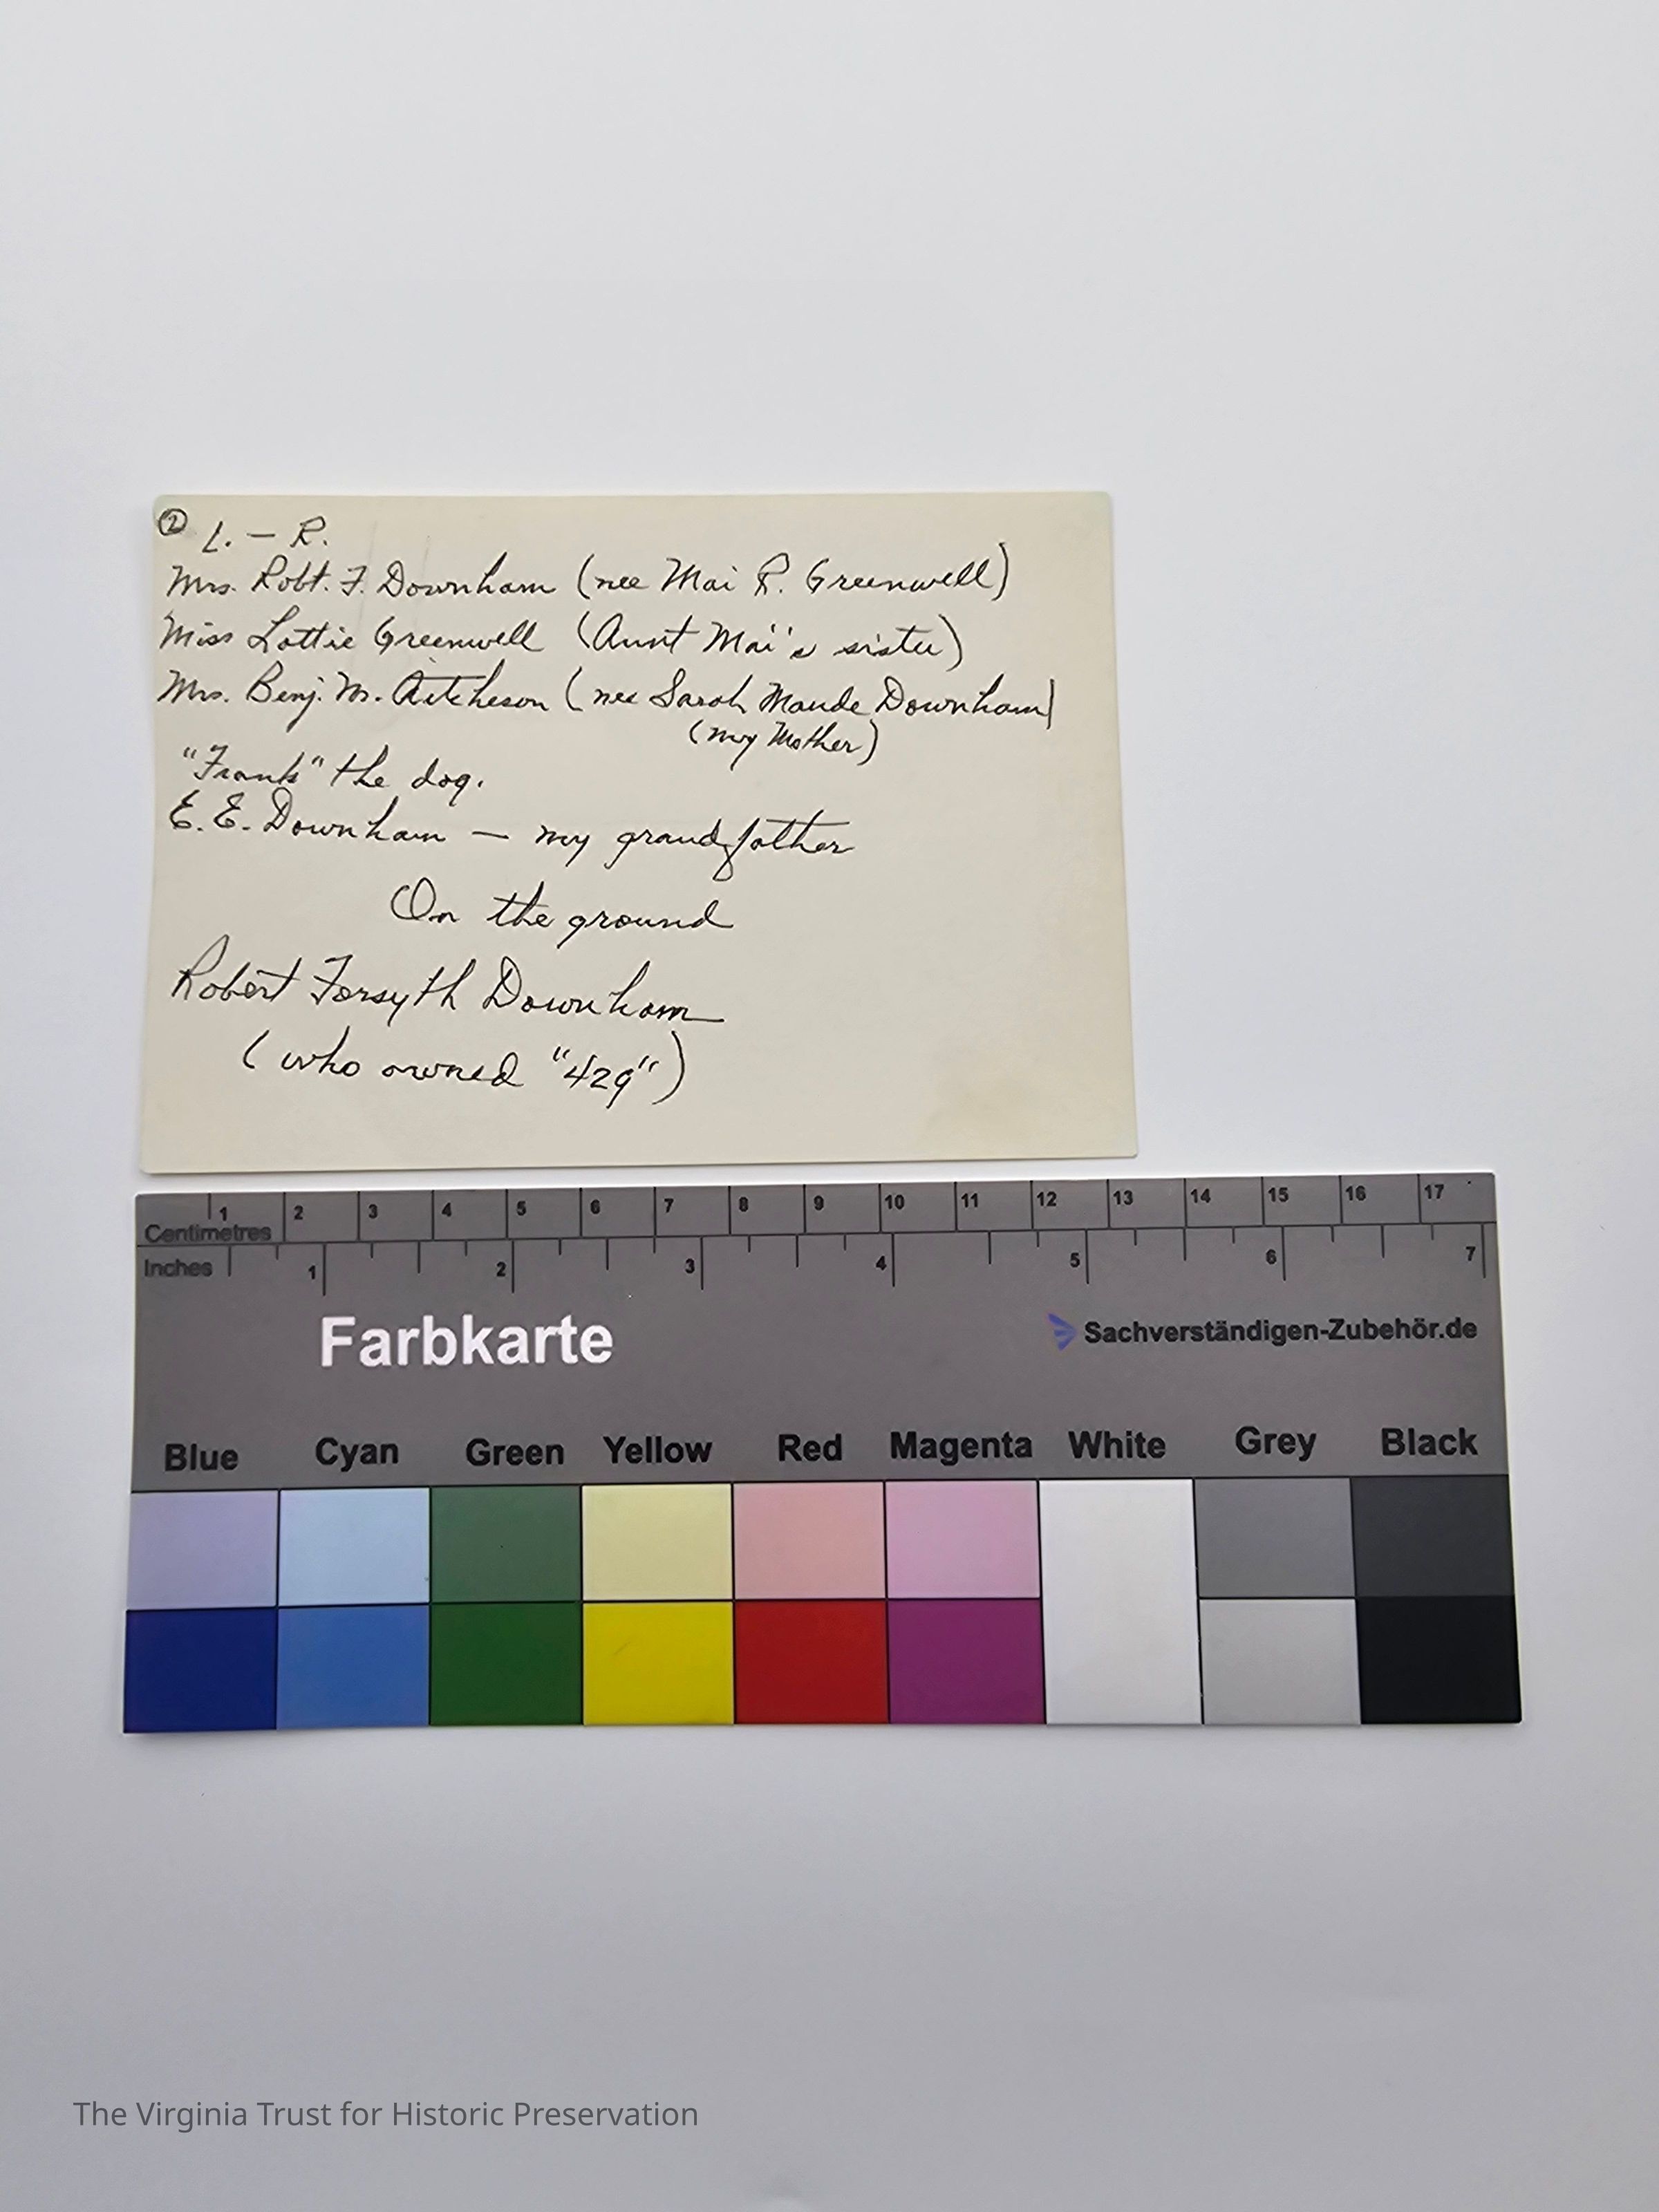 ② L. — R.
Mrs. Robt. F. Downham (nee Mai R. Greenwell)
Miss Lottie Greenwell (Aunt Mai's sister)
Mrs. Benj. M. Aitcheson (nee Sarah Maude Downham)
(my Mother)
"Frank" the dog.
E. E. Downham — my grandfather
On the ground
Robert Forsyth Downham
(who owned "429")
1 2 3 4 5 6 7 8 9 10 11 12 13 14 15 16 17
Centimetres
Inches 1 2 3 4 5 6 7
Farbkarte
Sachverständigen-Zubehör.de
Blue Cyan Green Yellow Red Magenta White Grey Black
The Virginia Trust for Historic Preservation